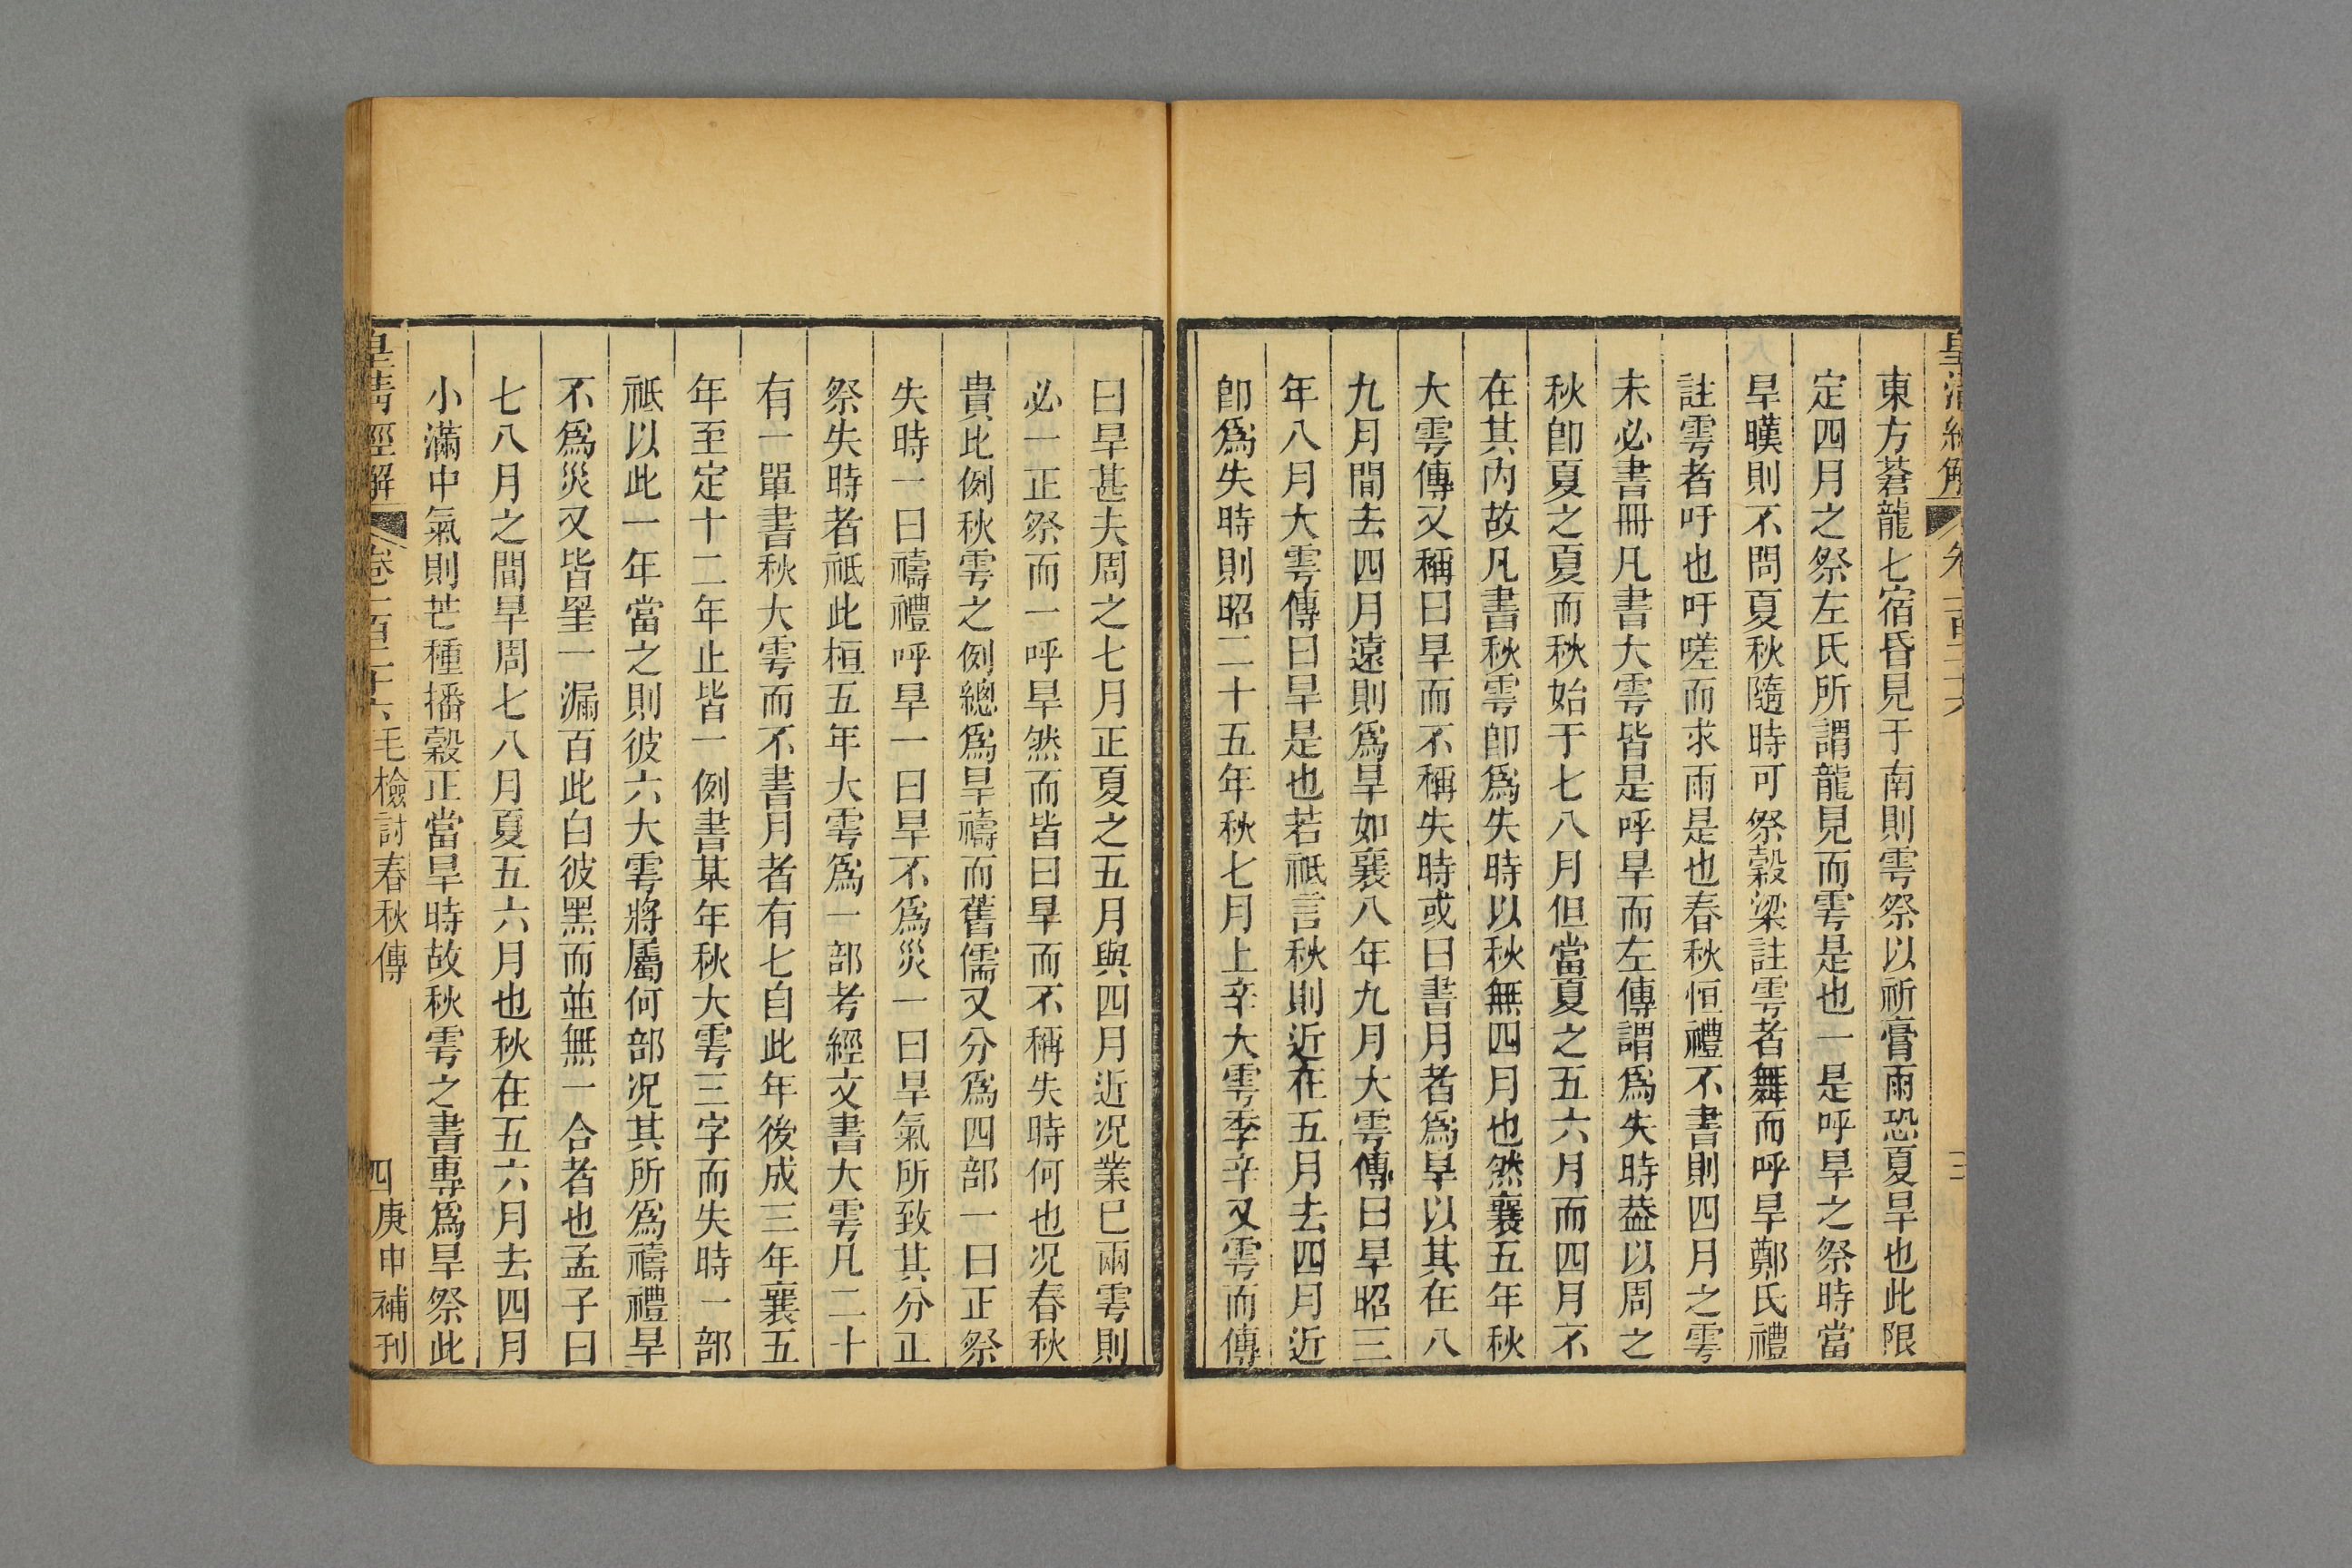 東方蒼龍七宿昏見于南則雩祭以祈膏雨恐夏旱也此限
定四月之祭左氏所謂龍見而雩是也一是呼旱之祭時當
旱暵則不問夏秋隨時可祭穀梁註雩者舞而呼旱鄭氏禮
註雩者吁也吁嗟而求雨是也春秋恒禮不書則四月之雩
未必書冊凡書大雩皆是呼旱而左傳謂爲失時葢以周之
秋卽夏之夏而秋始于七八月但當夏之五六月而四月不
在其內故凡書秋雩卽爲失時以秋無四月也然襄五年秋
大雩傳又稱曰旱而不稱失時或曰書月者爲旱以其在八
九月間去四月遠則爲旱如襄八年九月大雩傳曰旱昭三
年八月大雩傳曰旱是也若祗言秋則近在五月去四月近
卽爲失時則昭二十五年秋七月上辛大雩季辛又雩而傳
曰旱甚夫周之七月正夏之五月與四月近况業已兩雩則
必一正祭而一呼旱然而皆曰旱而不稱失時何也况春秋
貴比例秋雩之例總爲旱禱而舊儒又分爲四部一曰正祭
失時一曰禱禮呼旱一曰旱不爲災一曰旱氣所致其分正
祭失時者祗此桓五年大雩爲一部考經文書大雩凡二十
有一單書秋大雩而不書月者有七自此年後成三年襄五
年至定十二年止皆一例書某年秋大雩三字而失時一部
祗以此一年當之則彼六大雩將屬何部况其所爲禱禮旱
不爲災又皆罣一漏百此白彼黑而並無一合者也孟子曰
七八月之間旱周七八月夏五六月也秋在五六月去四月
小滿中氣則芒種播穀正當旱時故秋雩之書專爲旱祭此
皇清經解 卷一百二十六 毛檢討春秋傳 四 庚申補刊